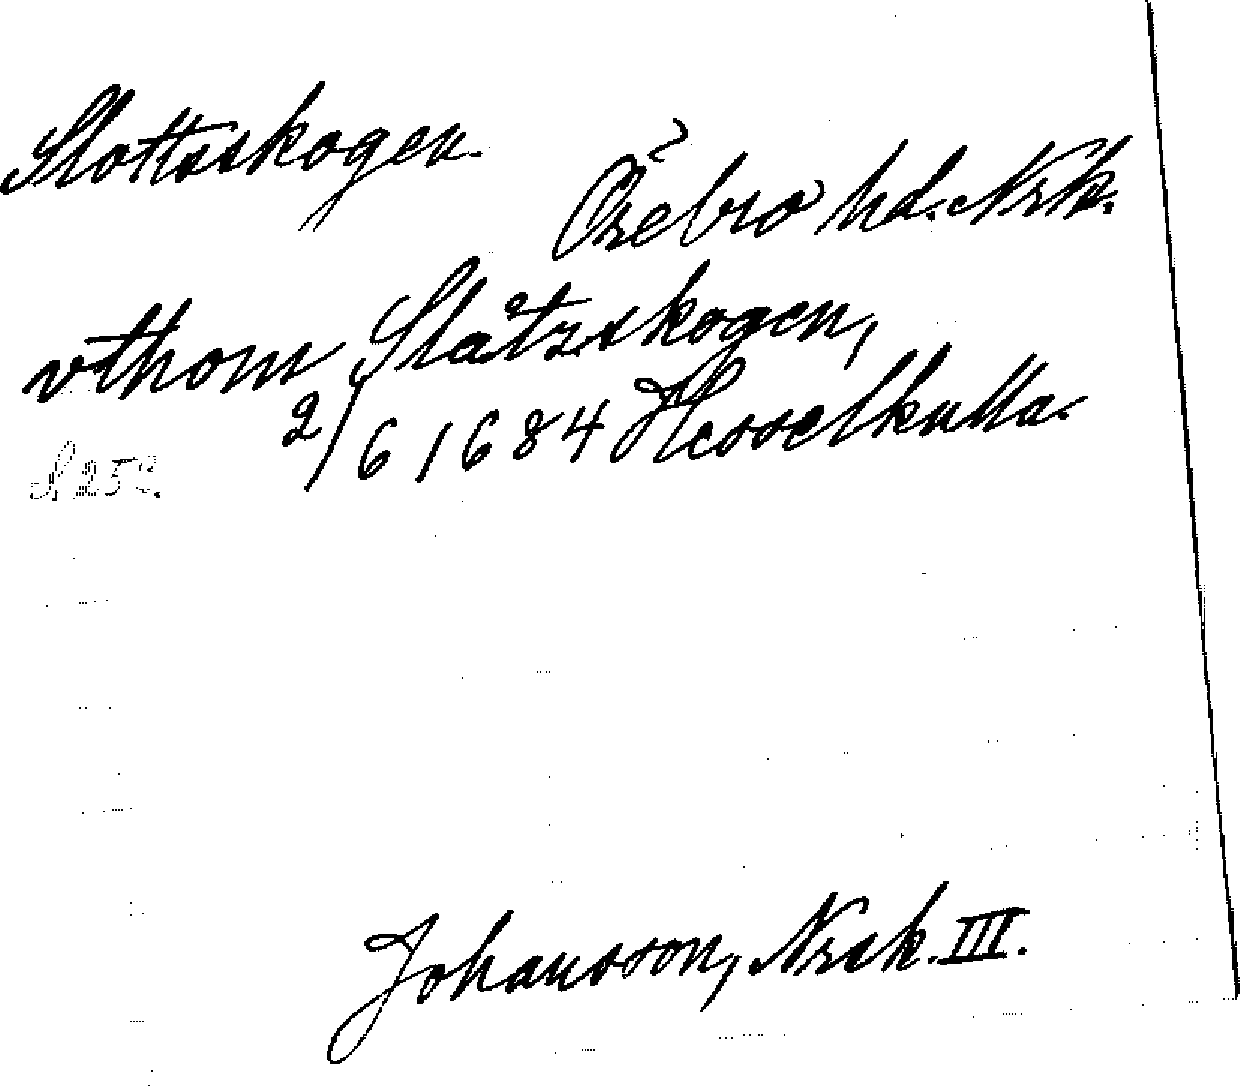 Slottsskogen.
Örebro hd. Nrk.
vthom Slåtzskogen,
2/6 1684 Hesselkulla.
Johansson, Nrsk. III.